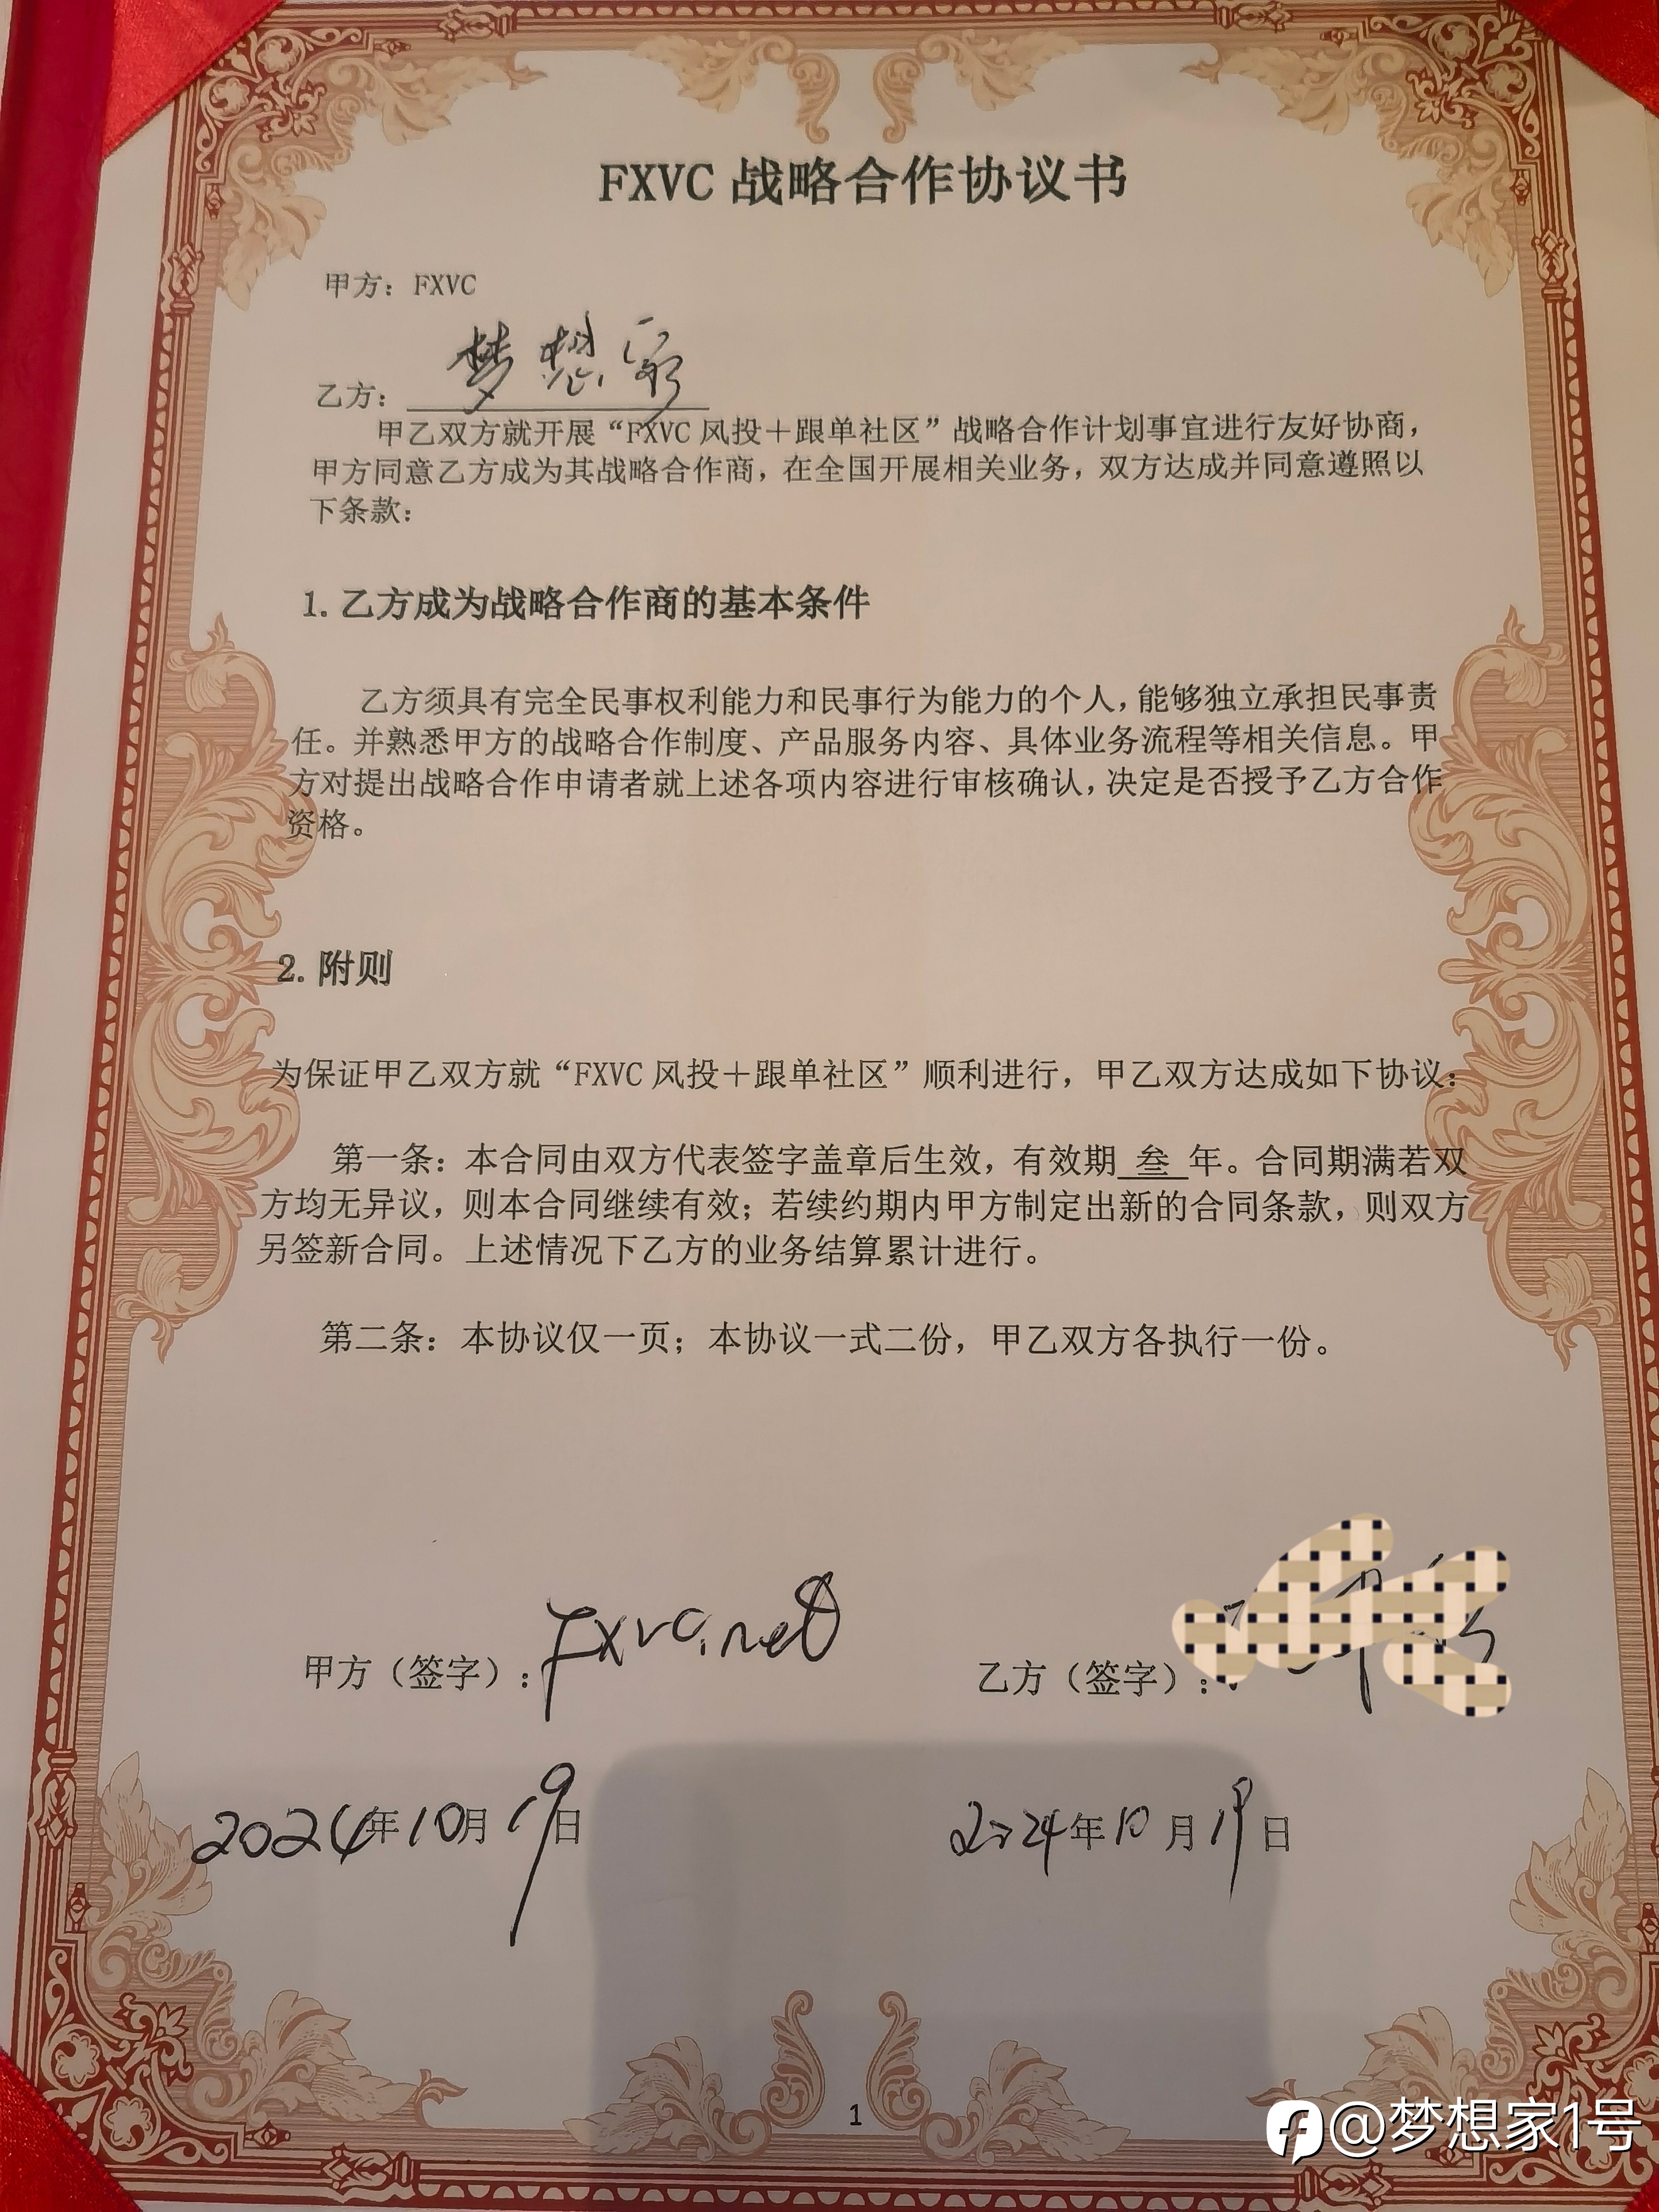 FXVC 战略合作协议书
甲方：FXVC
乙方：梦想家
甲乙双方就开展“FXVC 风投＋跟单社区”战略合作计划事宜进行友好协商，
甲方同意乙方成为其战略合作商，在全国开展相关业务，双方达成并同意遵照以
下条款：
1. 乙方成为战略合作商的基本条件
乙方须具有完全民事权利能力和民事行为能力的个人，能够独立承担民事责
任。并熟悉甲方的战略合作制度、产品服务内容、具体业务流程等相关信息。甲
方对提出战略合作申请者就上述各项内容进行审核确认，决定是否授予乙方合作
资格。
2. 附则
为保证甲乙双方就“FXVC 风投＋跟单社区”顺利进行，甲乙双方达成如下协议：
第一条：本合同由双方代表签字盖章后生效，有效期 叁 年。合同期满若双
方均无异议，则本合同继续有效；若续约期内甲方制定出新的合同条款，则双方
另签新合同。上述情况下乙方的业务结算累计进行。
第二条：本协议仅一页；本协议一式二份，甲乙双方各执行一份。
甲方（签字）：Fxvc.net
乙方（签字）：
2024年10月19日
2024年10月19日
1
@梦想家1号